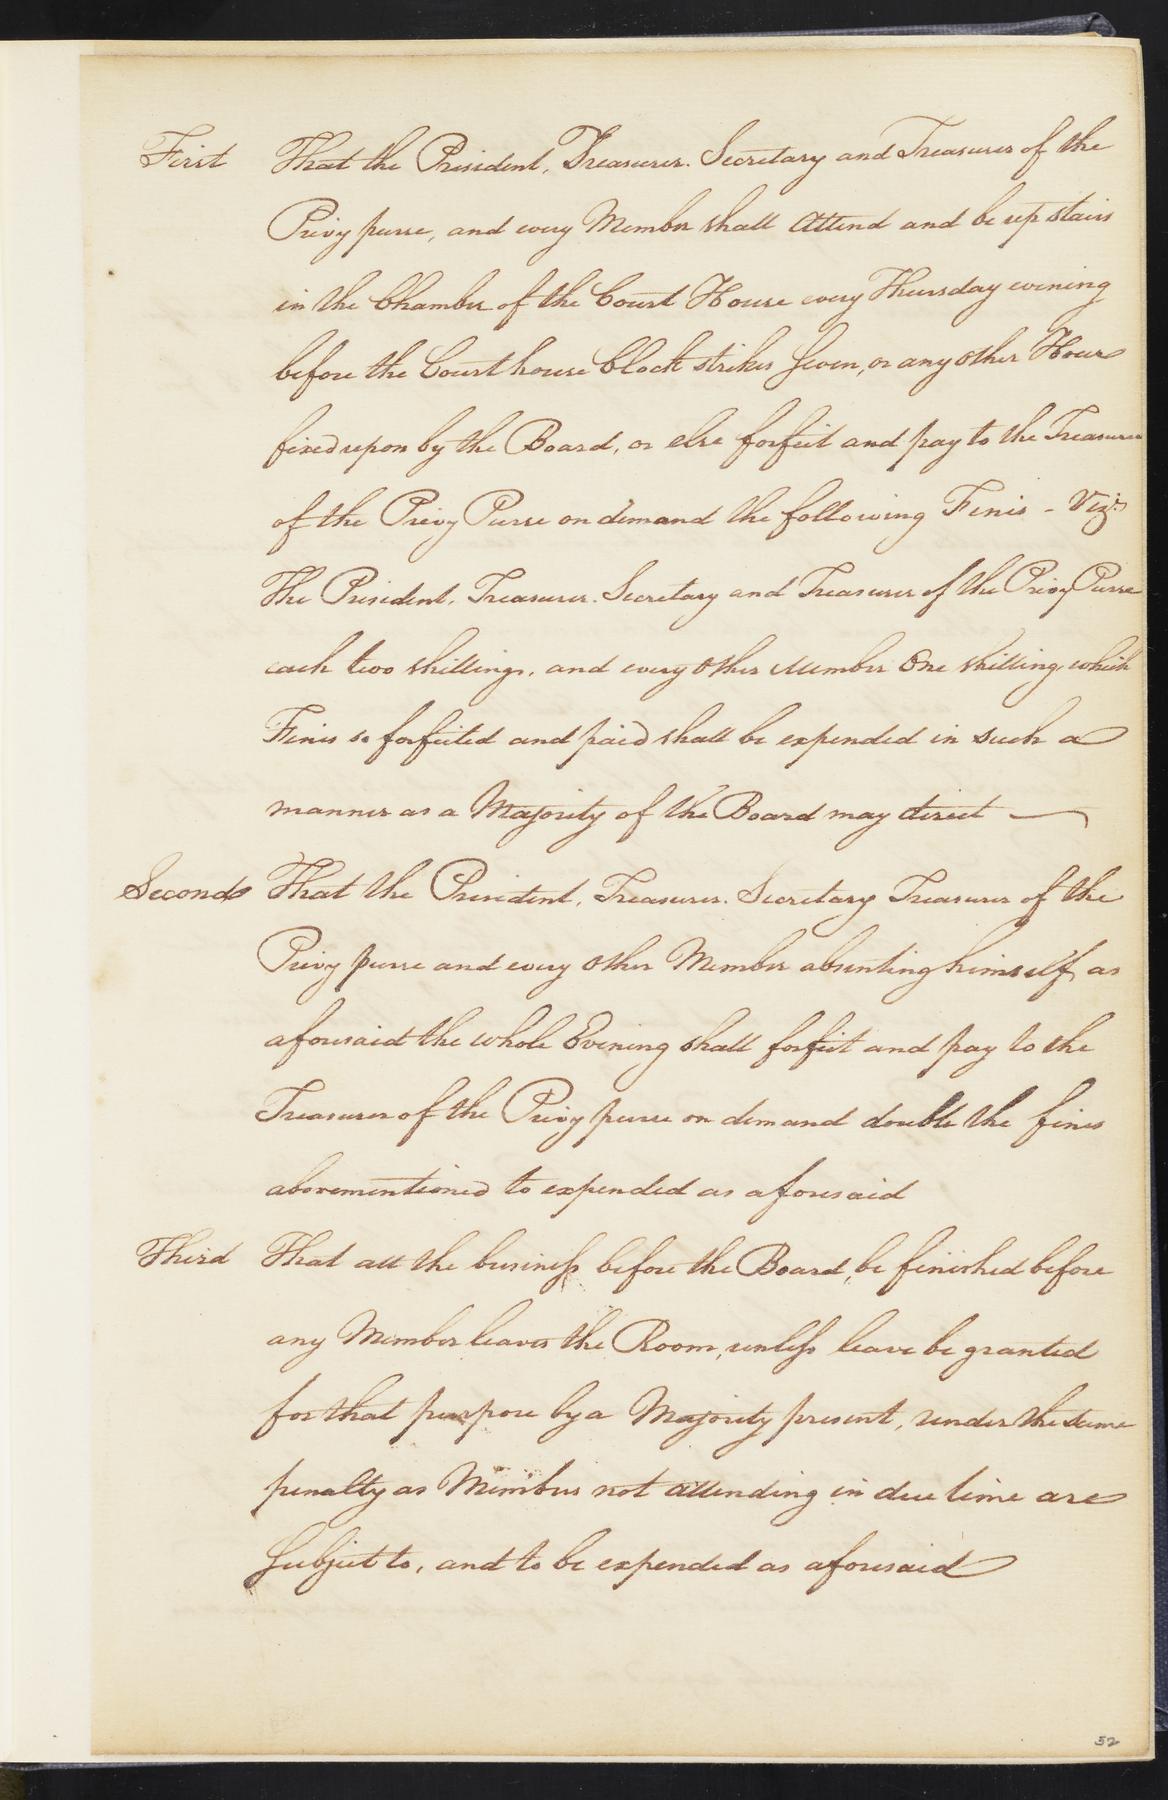 First That the President, Treasurer. Secretary and Treasurer of the
Privy purse, and every Member shall Attend and be up stairs
in the Chamber of the Court House every Thursday evening
before the Court house Clock strikes Seven, or any other Hour
fixed upon by the Board, or else forfeit and pay to the Treasurer
of the Privy Purse on demand the following Fines - Vizt.
The President. Treasurer. Secretary and Treasurer of the Privy Purse
each two shillings, and every other Member One shilling which
Fines so forfeited and paid shall be expended in such a
manner as a Majority of the Board may direct —
Second That the President, Treasurer. Secretary Treasurer of the
Privy purse and every other Member absenting himself as
aforesaid the whole Evening shall forfeit and pay to the
Treasurer of the Privy purse on demand double the fines
abovementioned to expended as aforesaid
Third That all the business before the Board, be finished before
any Member leaves the Room, unless leave be granted
for that purpose by a Majority present, under the same
penalty as Members not attending in due time are
Subject to, and to be expended as aforesaid
52